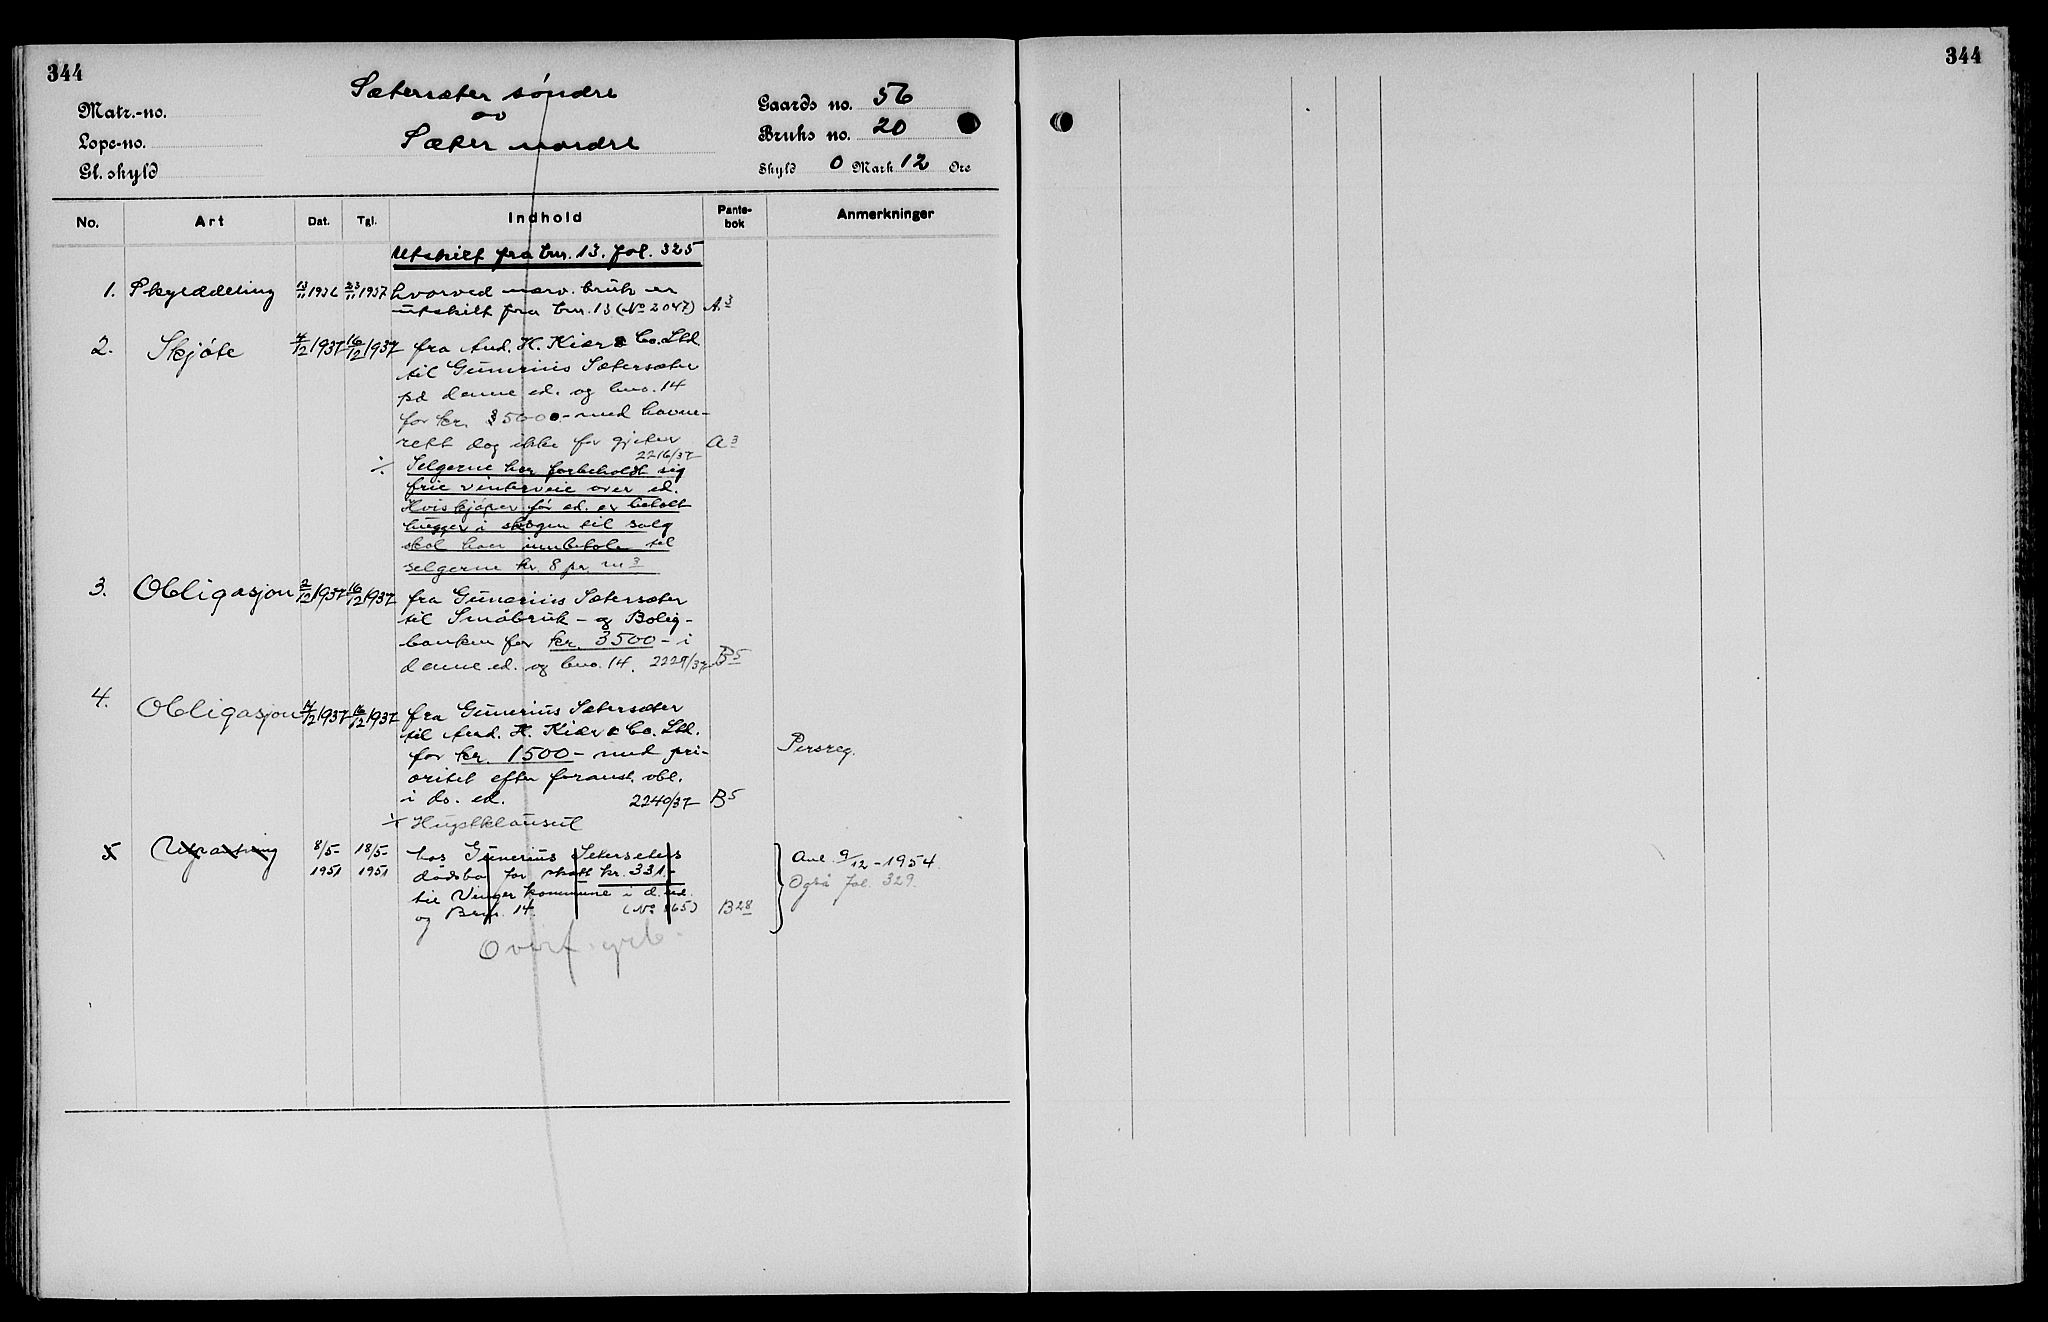 344
Matr.-no.
Lope-no.
Gl. skyld
Sætersæter söndre
av
Sæter nordre
Gaards no. 56
Bruks no. 20
Skyld 0 Mark 12 Øre
No. Art Dat. Tgl. Indhold Pante-bok Anmerkninger
Utskilt fra bnr. 13. fol. 325
1. Skylddeling 13/11 1936 23/11 1937 hvorved nærv. bruk er
utskilt fra bnr. 13 (No 2047) A3
2. Skjöte 4/12 1937 16/12 1937 fra And. H. Kiær & Co. Ltd.
til Gunerius Sætersæter
på denne ed. og bno. 14
for kr. 5000.- med havne-
rett dog ikke for gjeter A3
2216/37
÷ Selgerne har forbeholdt sig
frie vinterveie over ed.
Hvis kjöper för ed. er betalt
hugger i skogen til salg
skal han innbetale til
selgerne kr. 8 pr. m3
3. Obligasjon 2/12 1937 16/12 1937 fra Gunerius Sætersæter
til Småbruk- og Bolig-
banken for kr. 3500- i
denne ed. og bno. 14. 2229/37 B5
4. Obligasjon 4/12 1937 16/12 1937 fra Gunerius Sætersæter
til And. H. Kiær & Co. Ltd.
for kr. 1500- med pri-
oritet efter foranst. obl.
i do. ed. 2240/37 B5
Persreg.
÷ Hugstklausul
5 Utpantning 8/5- 1951 18/5- 1951 hos Gunerius Seterseters
dødsbo for skatt kr. 331.-
til Vinger kommune i d. ed.
og Bnr. 14. (No 865) B28
Avl. 9/12-1954
Også fol. 329.
Overf. grb.
344